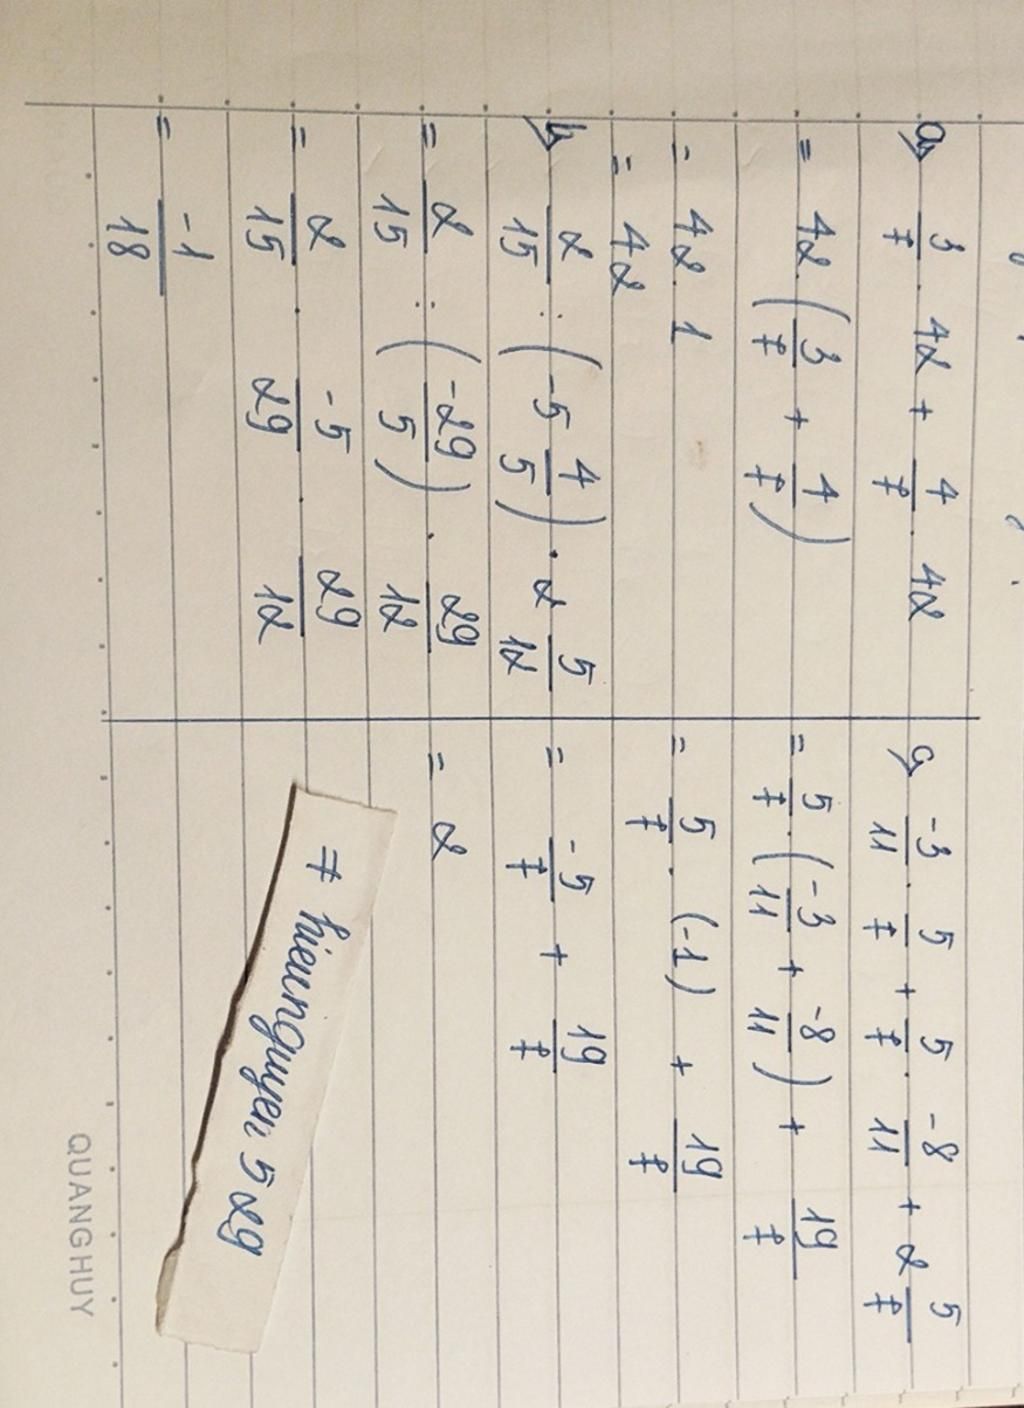 a, 3/7 . 42 + 4/7 . 42
= 42 ( 3/7 + 4/7 )
= 42 . 1
= 42
b, 2/15 : ( -5 4/5 ) . 2 5/12
= 2/15 : ( -29/5 ) . 29/12
= 2/15 . -5/29 . 29/12
= -1/18
c, -3/11 . 5/7 + 5/7 . -8/11 + 2 5/7
= 5/7 . ( -3/11 + -8/11 ) + 19/7
= 5/7 . (-1) + 19/7
= -5/7 + 19/7
= 2
# hiennguyen 529
QUANG HUY